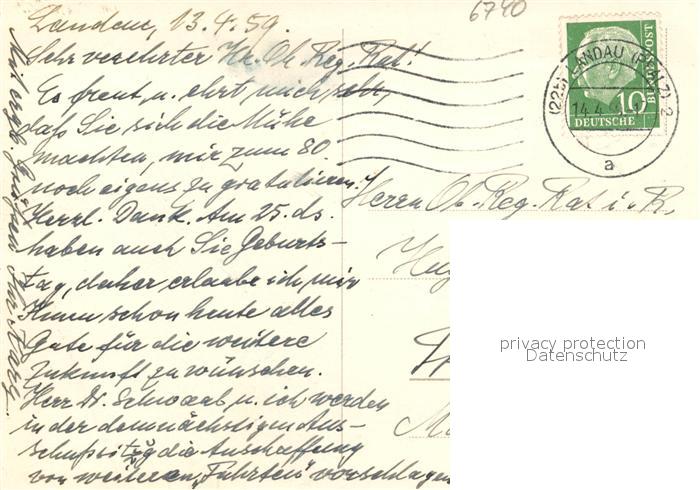 6740
Landau, 13.4.59.
Sehr verehrter Hr. Ob. Reg. Rat!
Es freut u. ehrt mich sehr,
daß Sie sich die Mühe
machten, mir zum 80.
noch eigens zu gratulieren!
Herzl. Dank. Am 25. ds.
haben auch Sie Geburts-
tag, daher erlaube ich mir
Ihnen schon heute alles
Gute für die weitere
Zukunft zu wünschen.
Herr Dr. Schwaab u. ich werden
in der demnächstigen Aus-
schußsitzg die Anschaffung
von weiteren „Fährten" vorschlagen
Mit ergb. Grüßen Ihr
Herrn Ob. Reg. Rat i. R.
Hug
M
(22b) LANDAU (PFALZ) 2
14.4.
a
10
DEUTSCHE
BUNDESPOST
privacy protection
Datenschutz